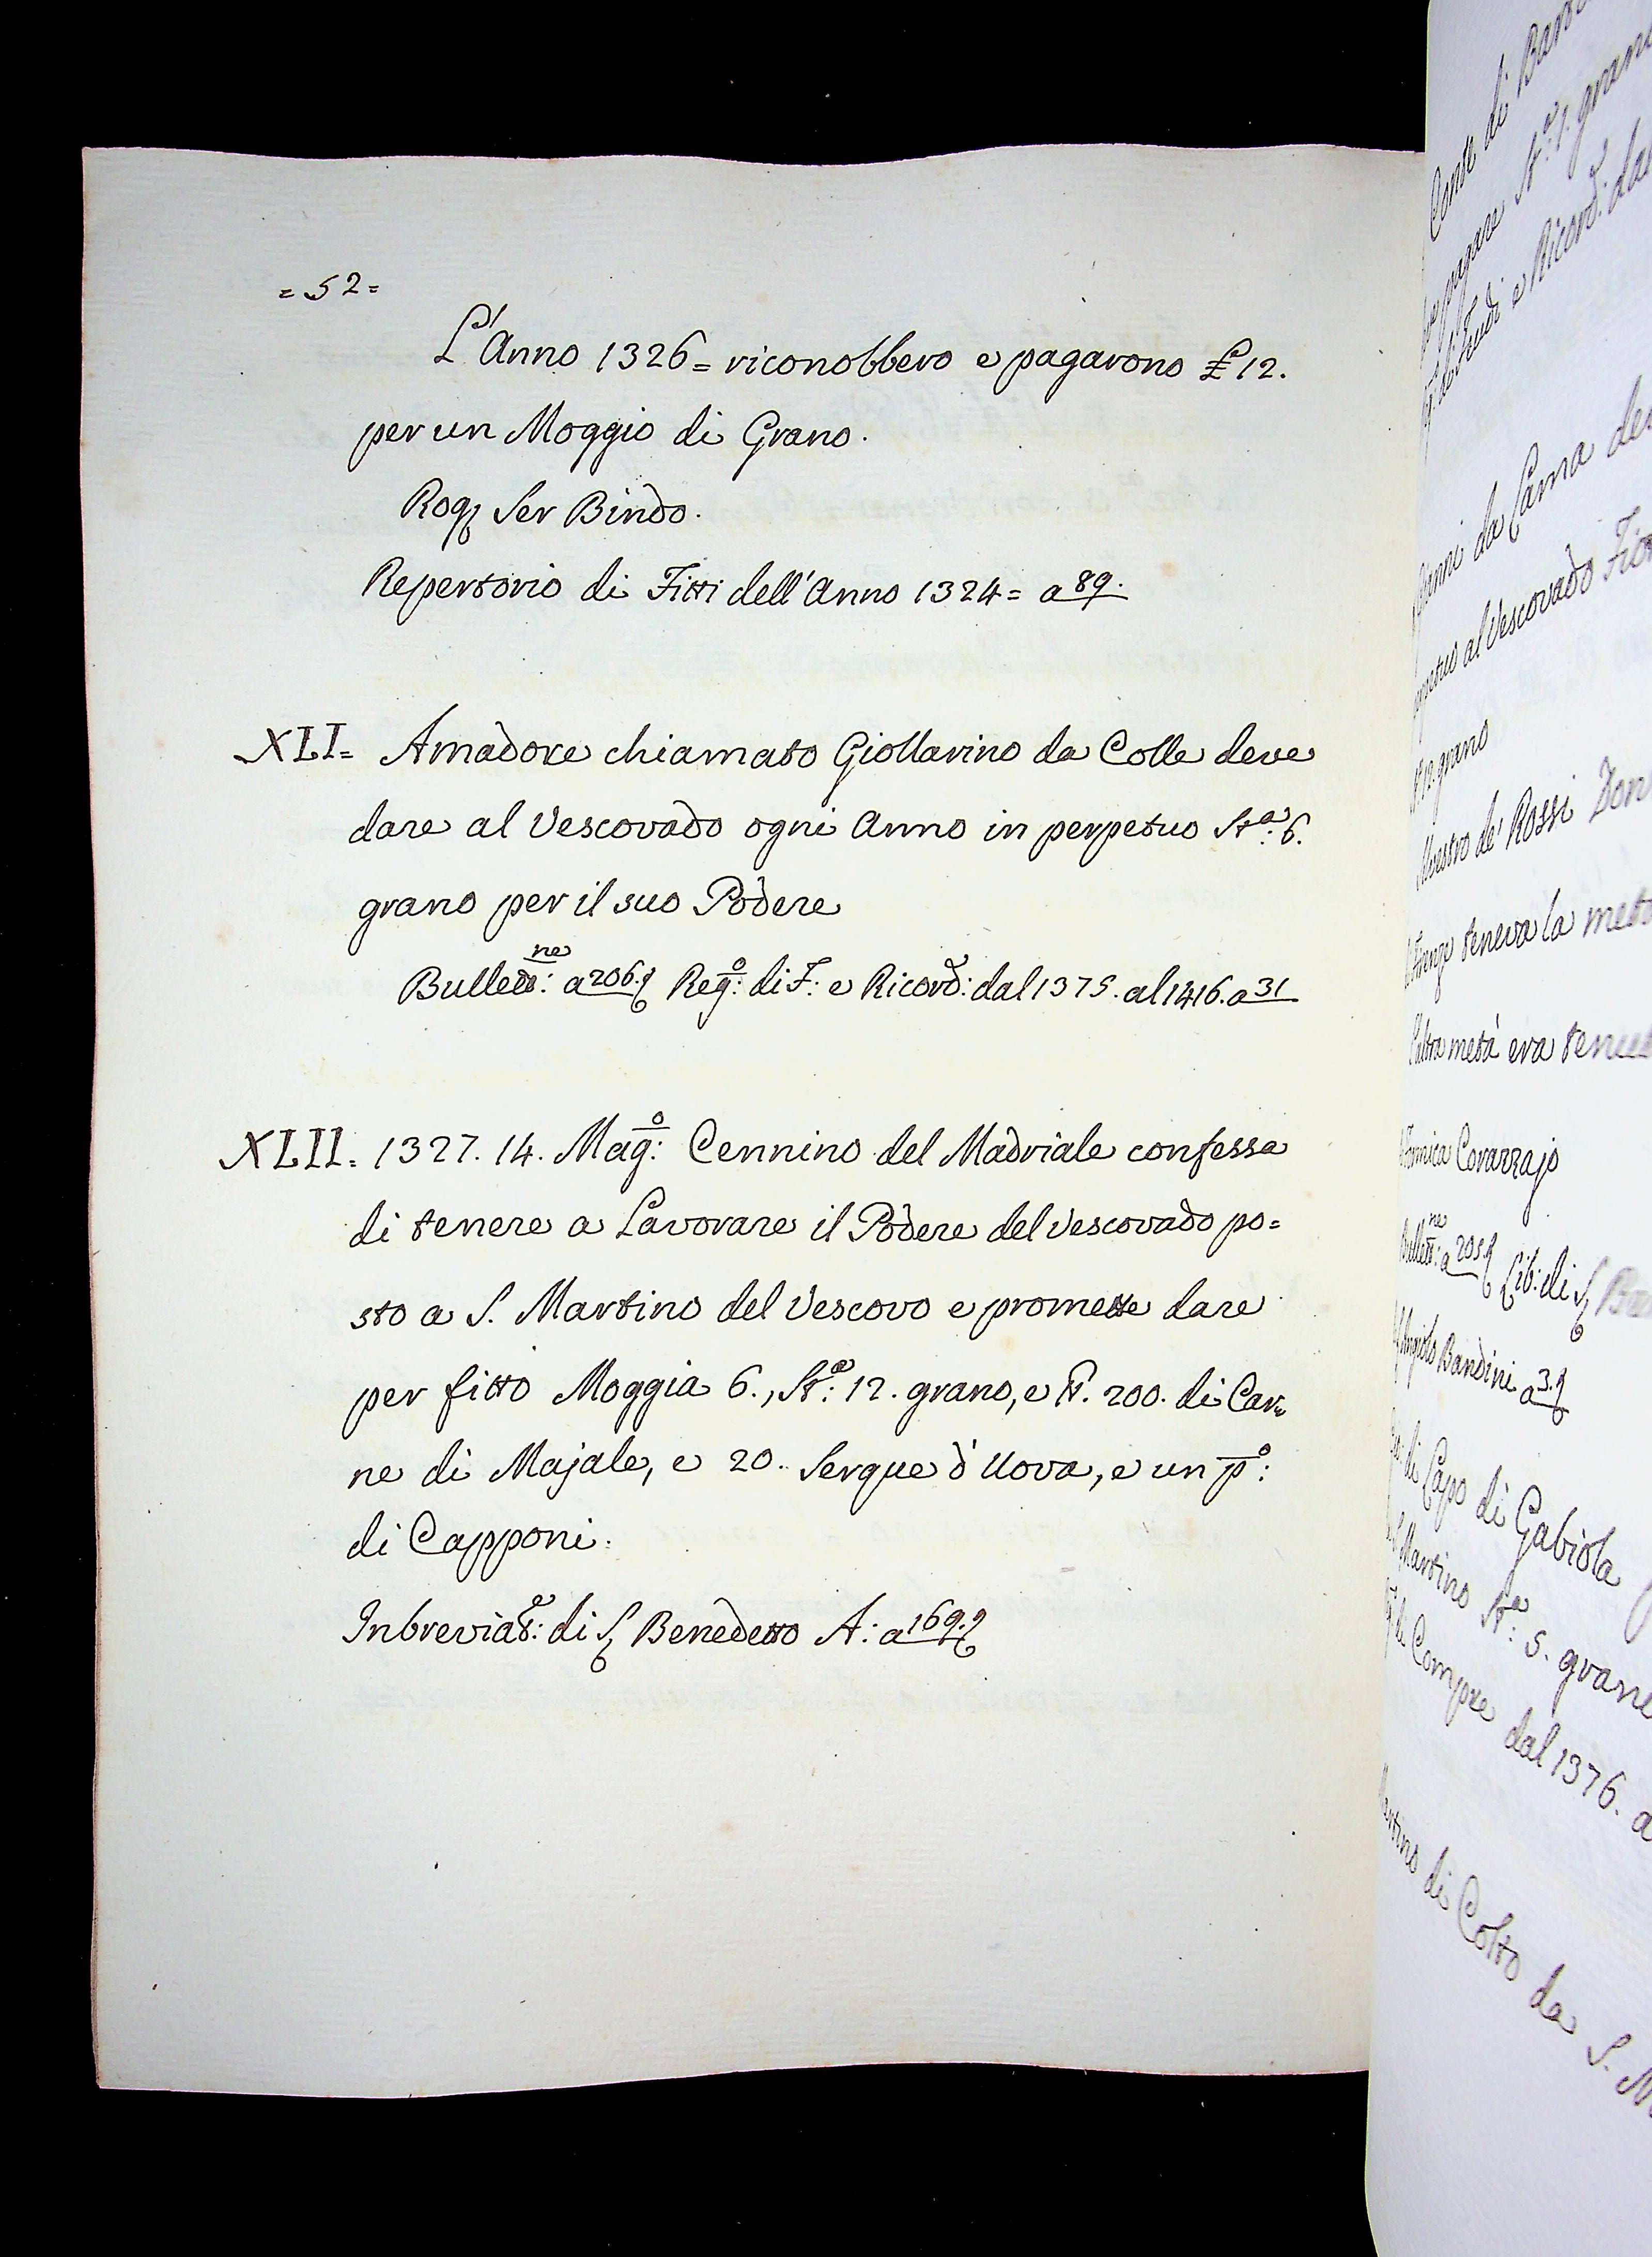 = 52 =
L'Anno 1326 = riconobbero e pagarono £ 12.
per un Moggio di Grano.
Rog. Ser Bindo.
Repertorio di Fitti dell'Anno 1324 = a 89.
XLI = Amadore chiamato Giollarino da Colle deve
dare al Vescovado ogni Anno in perpetuo Sta: 6.
grano per il suo Podere
Bullettne: a 206. Rego: di F: e Ricord: dal 1375. al 1416. a 31
XLII = 1327. 14. Mago: Cennino del Madriale confessa
di tenere a Lavorare il Podere del Vescovado po=
sto a S. Martino del Vescovo e promette dare
per fitto Moggia 6., Sta: 12. grano, e 200. di Car=
ne di Majale, e 20. Serque d'Uova, e un po:
di Capponi.
Inbreviate: di S. Benedetto A: a 169.
Conte di
pagare St: 1. gran
e Ricord: da
da Canna
al Vescovado
12. grano
de' Rossi
teneva la
metà era
Covarzajo
Bullettne: a 205. Lib: di S.
Bandini a 3.
di Capo di Gabiola
Martino Sta: 5. grano
Compre dal 1376. a
di Colto da S. M